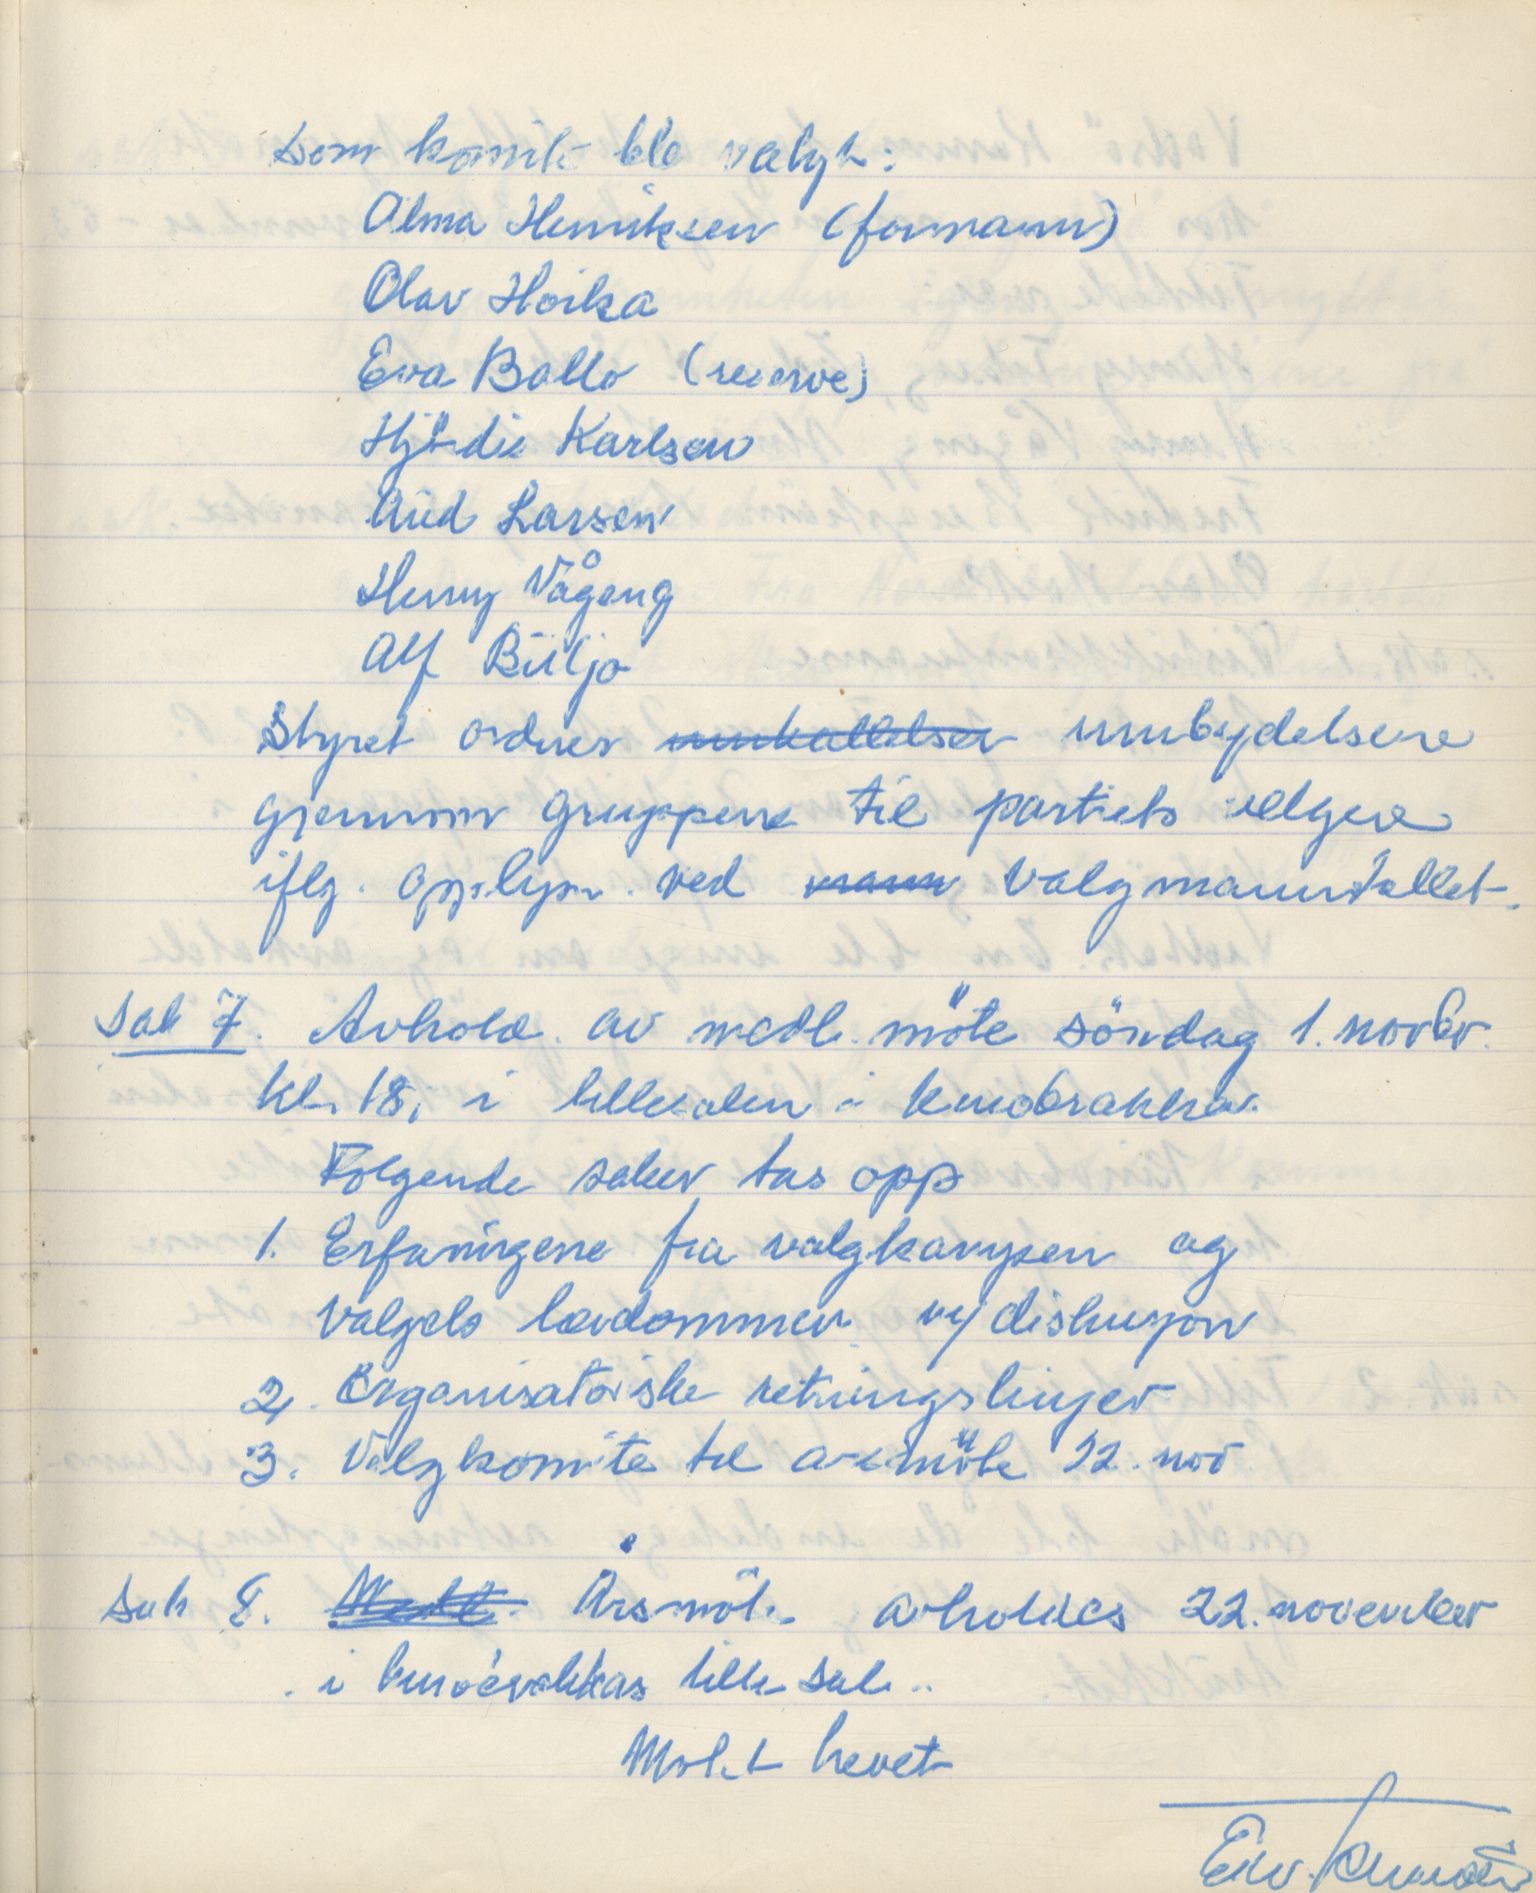 Som komite ble valgt:
Alma Henriksen (formann)
Olav Hoika
Eva Ballo (reserve)
Hjördis Karlsen
Aud Larsen
Henny Vågeng
Alf Biiljo
Styret ordner innkallelser innbydelsene
gjennom gruppene til partiets velgere
iflg. opplysn. ved mann valgmanntallet.
Sak 7. Avhold. av medl. möte söndag 1. novbr.
kl. 18, i lillesalen i kinobrakka.
Folgende saker tas opp
1. Erfaringene fra valgkampen og
valgets lærdommer m/ diskusjon
2. Organisatoriske retningslinjer
3. Valgkomite til årsmöte 22. nov
Sak 8. Medl. Årsmöte avholdes 22. november
i kinobrakkas lille sal..
Motet hevet